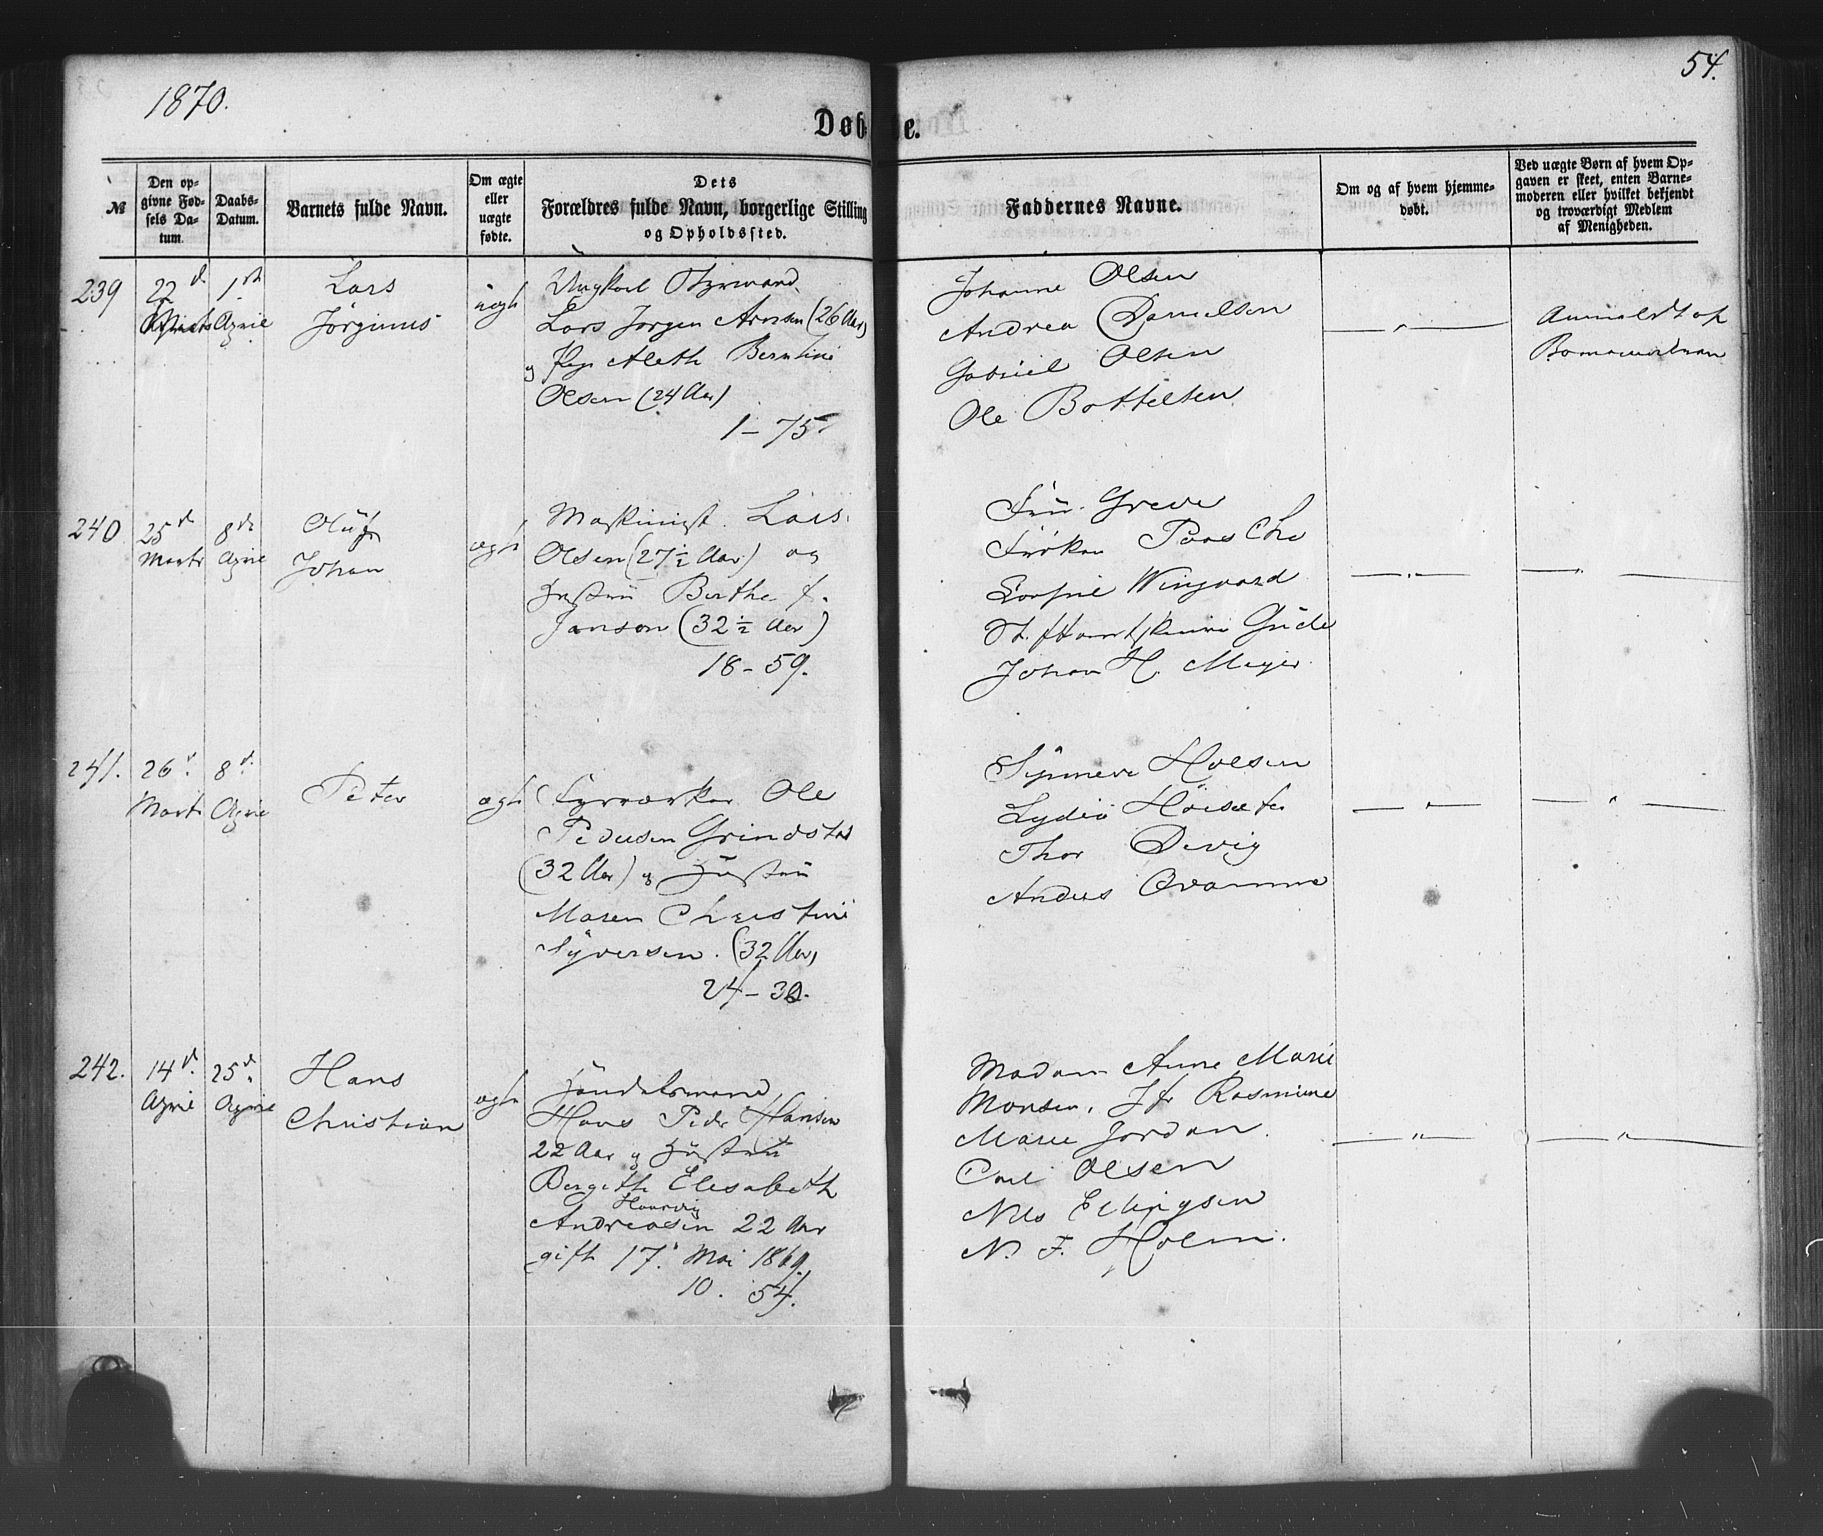 1870.
54.
Døbte.
№
Den opgivne Fødsels Datum.
Daabs-Datum.
Barnets fulde Navn.
Om ægte eller uægte fødte.
Dets Forældres fulde Navn, borgerlige Stilling og Opholdssted.
Faddernes Navne.
Om og af hvem hjemmedøbt.
Ved uægte Børn af hvem Opgaven er skeet, enten Barnemoderen eller hvilket bekjendt og troværdigt Medlem af Menigheden.
239
22d
Marts
1ste
April
Lars
Jørginus
uægte
Ungkarl Styrmand
Lars Jørgen Arnsen (26 Aar)
og Pige Aleth Berntine
Olsen (24 Aar)
1-75.
Johanne Olsen
Andrea Danielsen
Gabriel Olsen
Ole Bottelsen
Anmeldt af
Barnemoderen
240
25d
Marts
8de
April
Oluf
Johan
ægte
Maskinist Lars
Olsen (27½ Aar) og
Hustru Berthe f.
Janson (32½ Aar)
18-59.
Fru Greve
Frøken Paasche
Wingaard
Gude
Johan H. Meyer
241.
26d.
Marts
8d.
April
Peter
ægte
Fyrværker Ole
Pedersen Grindstad
(32 Aar) og Hustru
Maren Christine
Syversen. (32 Aar)
24-30.
Synneve Holsen
Lydia Høisæter
Thor Devig
Anders Qvamme
242.
14d.
April
25d.
April
Hans
Christian
ægte
Handelsmand
Hans Peder Hansen
22 Aar og Hustru
Bergithe Elisabeth
Andreasen 22 Aar
gift 17. Mai 1869.
10. 54.
Madam Anne Marie
Monsen, Jfr Rasmine
Marie Jordan.
Carl Olsen
Nils Ellingsen
N. F. Holm.